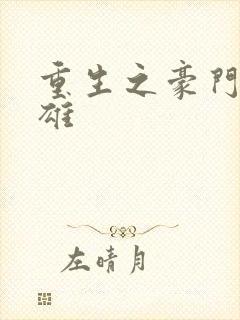 重生之豪門
雄
左晴月